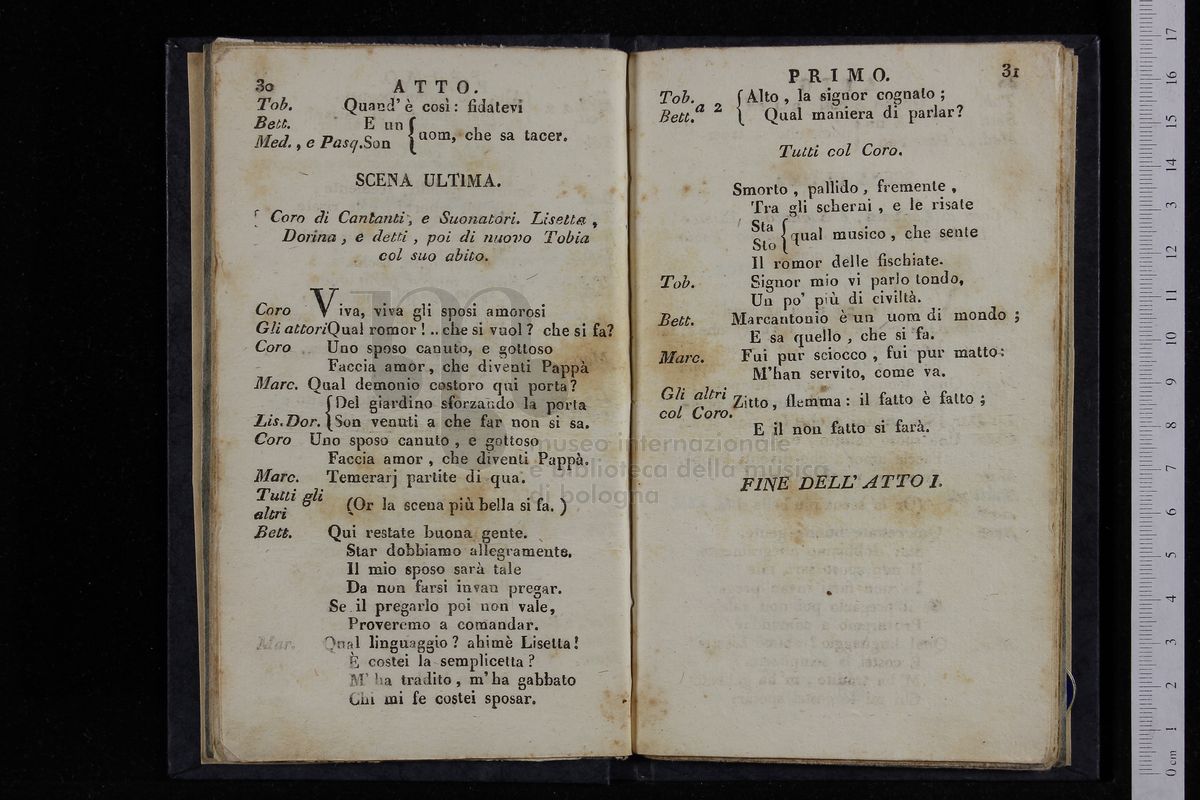 30 ATTO.
Tob. Quand' è così: fidatevi
Bett. E un
Med., e Pasq. Son { uom, che sa tacer.
SCENA ULTIMA.
Coro di Cantanti, e Suonatori. Lisetta,
Dorina, e detti, poi di nuovo Tobia
col suo abito.
Coro Viva, viva gli sposi amorosi
Gli attori Qual romor! .. che si vuol? che si fa?
Coro Uno sposo canuto, e gottoso
Faccia amor, che diventi Pappà
Marc. Qual demonio costoro qui porta?
{ Del giardino sforzando la porta
Lis. Dor. { Son venuti a che far non si sa.
Coro Uno sposo canuto, e gottoso
Faccia amor, che diventi Pappà.
Marc. Temerarj partite di qua.
Tutti gli
altri (Or la scena più bella si fa.)
Bett. Qui restate buona gente.
Star dobbiamo allegramente.
Il mio sposo sarà tale
Da non farsi invan pregar.
Se il pregarlo poi non vale,
Proveremo a comandar.
Mar. Qual linguaggio? ahimè Lisetta!
È costei la semplicetta?
M' ha tradito, m' ha gabbato
Chi mi fe costei sposar.
PRIMO. 31
Tob. a 2 { Alto, la signor cognato;
Bett. { Qual maniera di parlar?
Tutti col Coro.
Smorto, pallido, fremente,
Tra gli scherni, e le risate
Sta
Sto { qual musico, che sente
Il romor delle fischiate.
Tob. Signor mio vi parlo tondo,
Un po' più di civiltà.
Bett. Marcantonio è un uom di mondo;
E sa quello, che si fa.
Marc. Fui pur sciocco, fui pur matto:
M'han servito, come va.
Gli altri
col Coro. Zitto, flemma: il fatto è fatto;
E il non fatto si farà.
FINE DELL' ATTO I.
museo internazionale
e biblioteca della musica
di bologna
0 cm 1 2 3 4 5 6 7 8 9 10 11 12 13 14 15 16 17